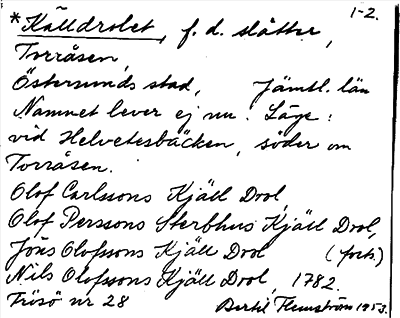 1-2.
*Källdrolet, f. d. slåtter,
Torråsen,
Östersunds stad, Jämtl. län
Namnet lever ej nu. Läge:
vid Helvetesbäcken, söder om
Torråsen.
Olof Carlssons Kjäll Drol,
Olof Perssons Sterbhus Kjäll Drol,
Jöns Olofssons Kjäll Drol (forts.)
Nils Olofssons Kjäll Drol, 1782.
Frösö nr 28 Bertil Flemström 1953.